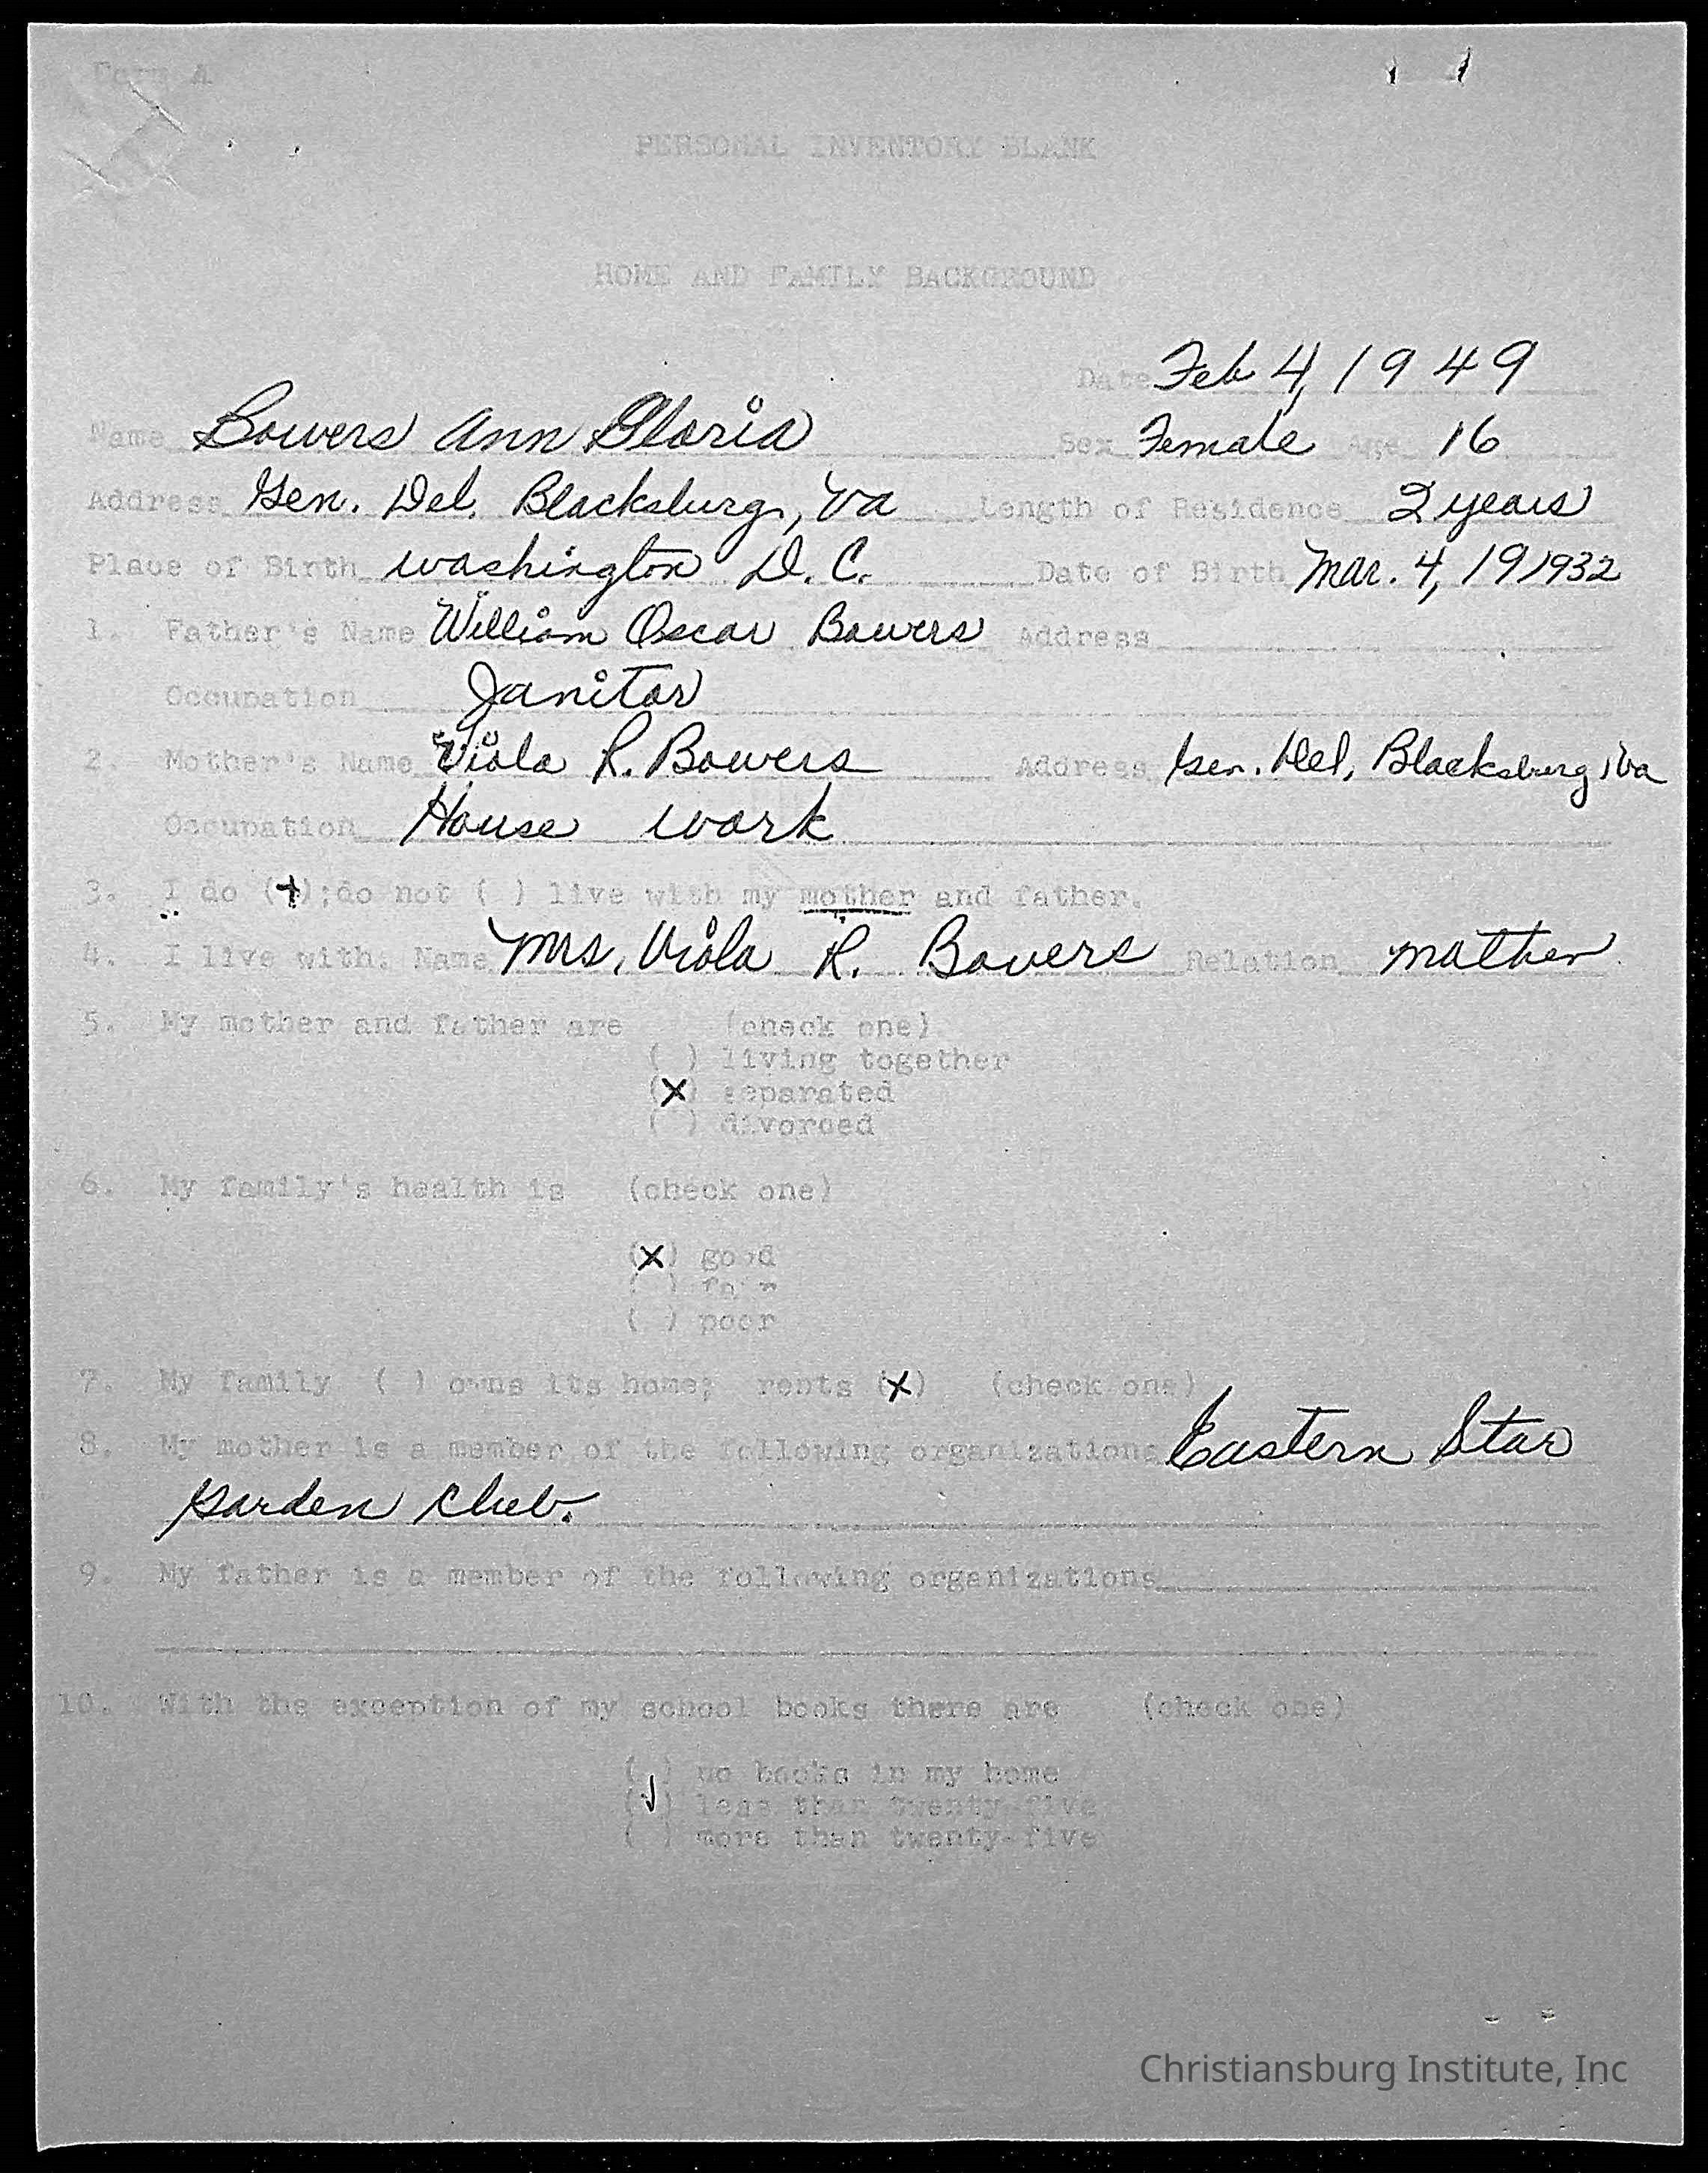 Form A
PERSONAL INVENTORY BLANK
HOME AND FAMILY BACKGROUND
Date Feb 4, 1949
Name Bowers Ann Gloria Sex Female Age 16
Address Gen. Del. Blacksburg, Va Length of Residence 2 years
Place of Birth Washington D. C. Date of Birth Mar. 4, 191932
1. Father's Name William Oscar Bowers Address
Occupation Janitor
2. Mother's Name Viola R. Bowers Address Gen. Del, Blacksburg, Va
Occupation House work
3. I do (+); do not ( ) live with my mother and father.
4. I live with: Name Mrs, Viola R. Bowers Relation mother
5. My mother and father are (check one)
( ) living together
(X) separated
( ) divorced
6. My family's health is (check one)
(X) good
( ) fair
( ) poor
7. My family ( ) owns its home; rents (X) (check one)
8. My mother is a member of the following organizations Eastern Star
Garden Club.
9. My father is a member of the following organizations
10. With the exception of my school books there are (check one)
( ) no books in my home
(✓) less than twenty-five
( ) more than twenty-five
Christiansburg Institute, Inc